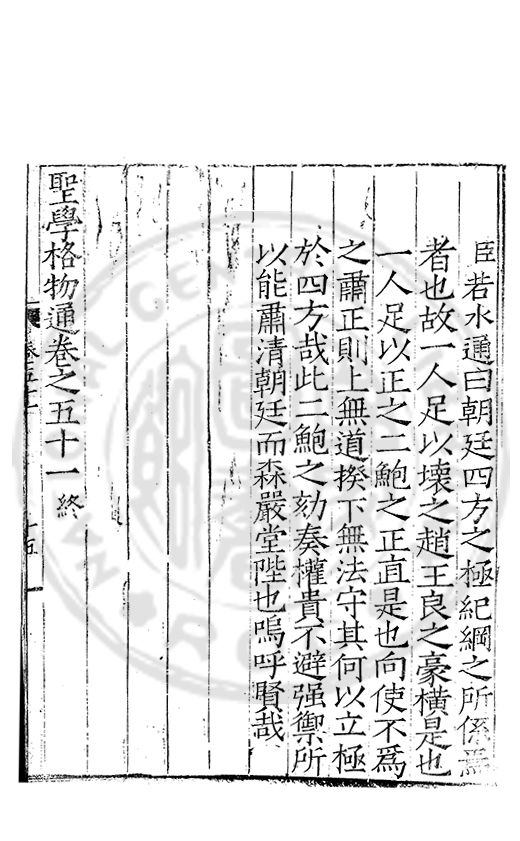 臣若水通曰朝廷四方之極紀綱之所係焉
者也故一人足以壞之趙王良之豪橫是也
一人足以正之二鮑之正直是也向使不爲
之肅正則上無道揆下無法守其何以立極
於四方哉此二鮑之劾奏權貴不避强禦所
以能肅清朝廷而森嚴堂陛也嗚呼賢哉
聖學格物通卷之五十一 終
卷五十一
十五